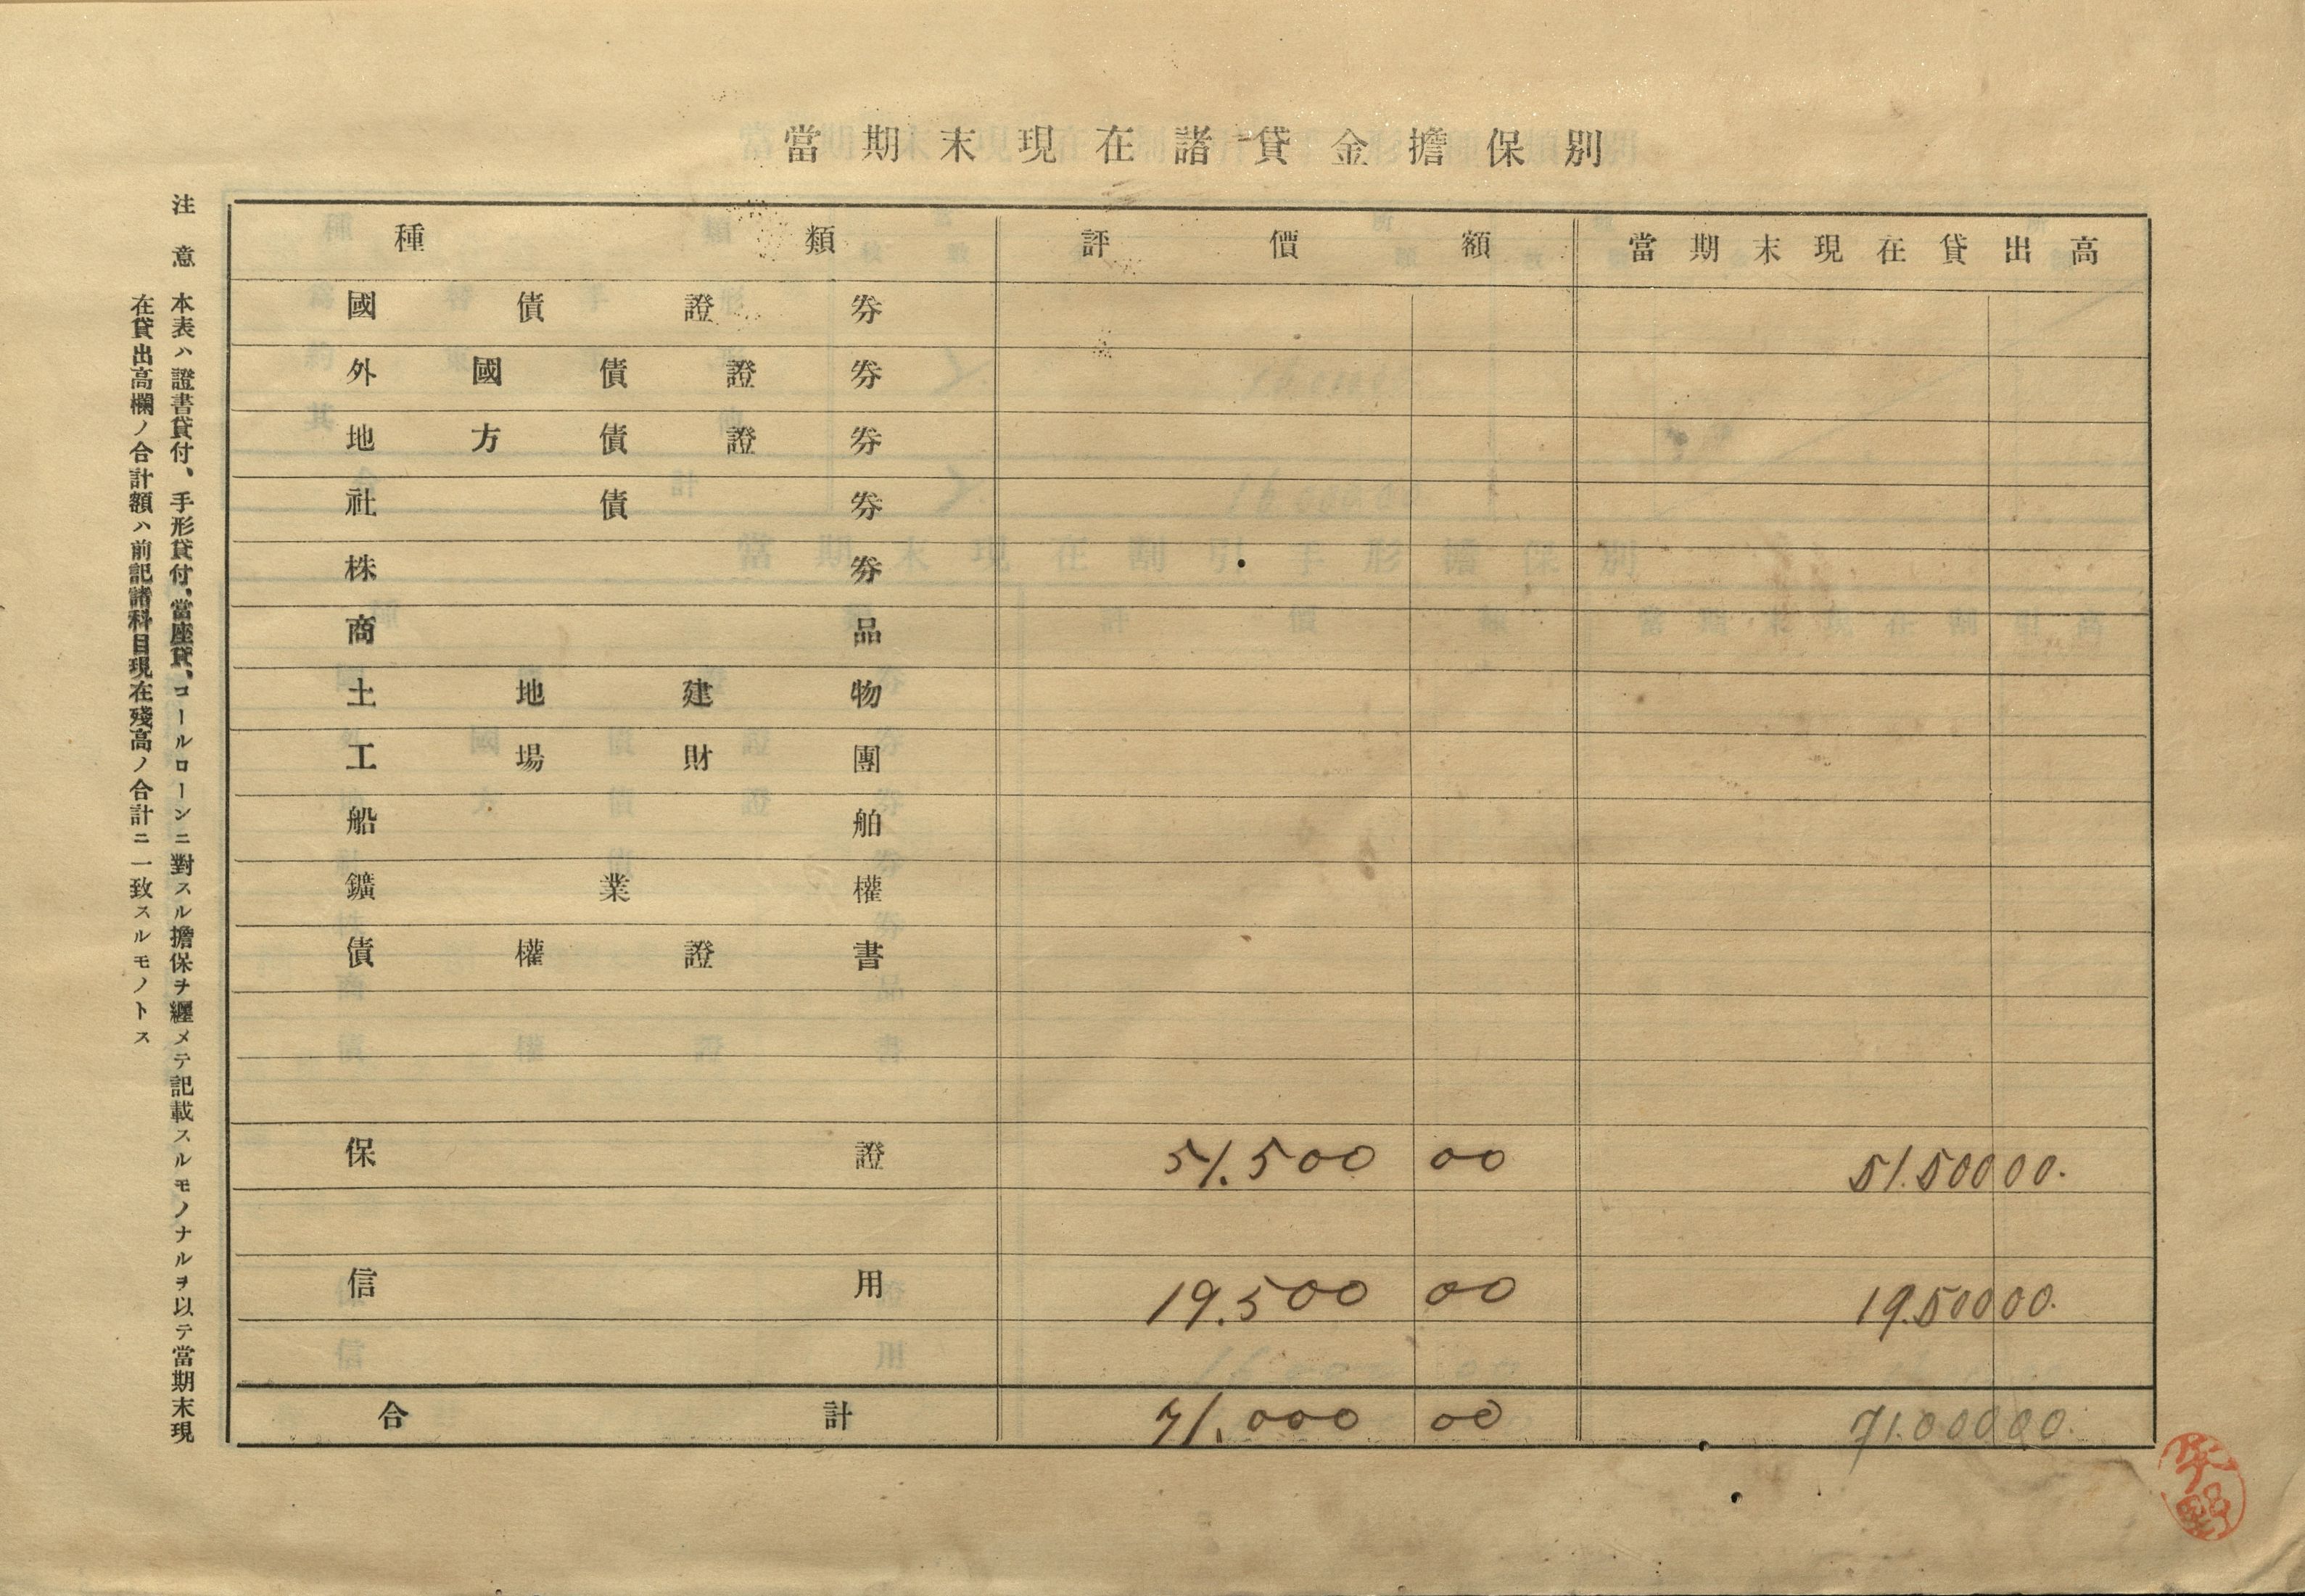 當期末現在諸貸金擔保別
種類 評價額 當期末現在貸出高
國債證券
外國債證券
地方債證券
社債券
株券
商品
土地建物
工場財團
船舶
鑛業權
債權證書
保證 51.500 00 51.500 00.
信用 19.500 00 19.500 00.
合計 71.000 00 71.000 00.
注意 本表ハ證書貸付、手形貸付、當座貸、コールローンニ對スル擔保ヲ纒メテ記載スルモノナルヲ以テ當期末現
在貸出高欄ノ合計額ハ前記諸科目現在殘高ノ合計ニ一致スルモノトス